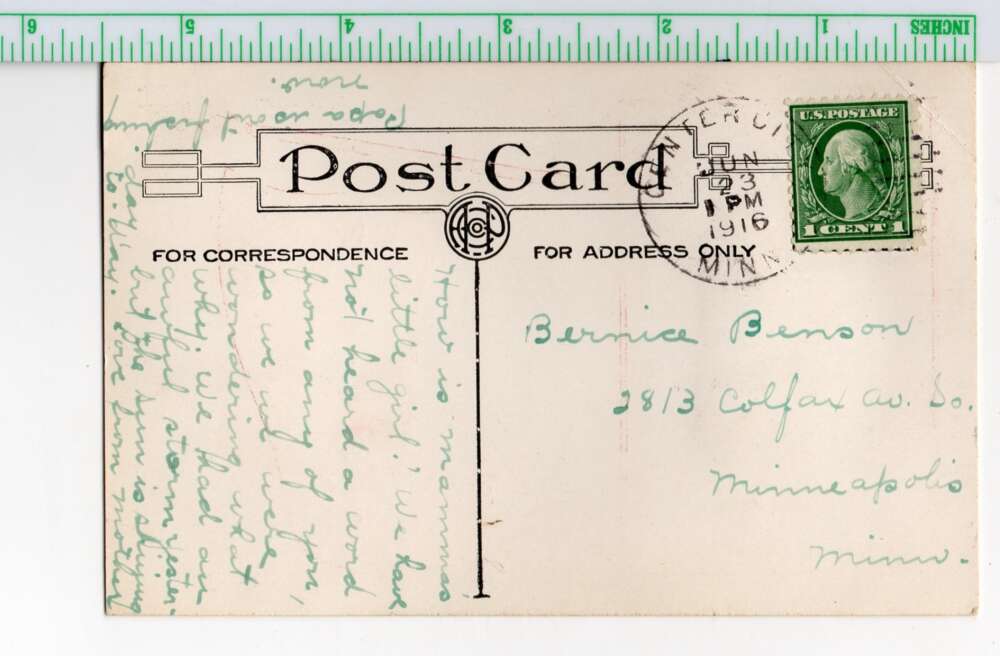 6 5 4 3 2 1 INCHES
Post Card
FOR CORRESPONDENCE
FOR ADDRESS ONLY
CENTER CI
JUN
23
1 PM
1916
MINN
U.S. POSTAGE
1 CENT 1
Bernice Benson
2813 Colfax av. So.
Minneapolis
Minn.
How is mamma's
little girl? We have
not heard a word
from any of you,
so we all were
wondering what
why. We had an
awful storm yester-
day but the sun is shining
to-day. Love from mother
Papa is out fishing
now.